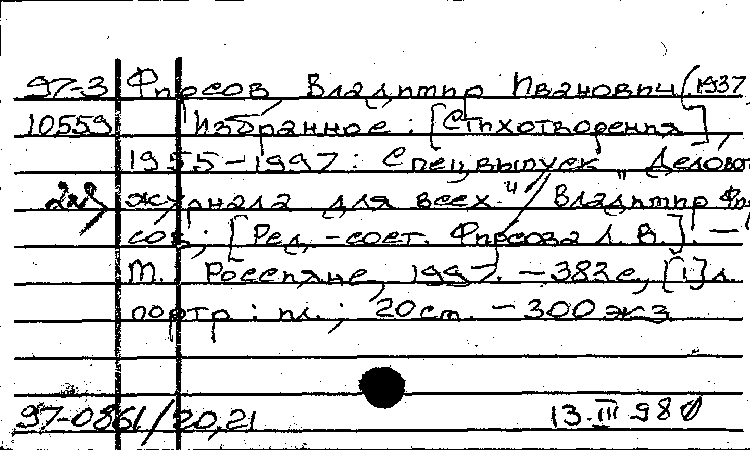 97-3 Фирсов, Владимир Иванович (1937
10559 Избранное : [Стихотворения],
1955-1997 : Спецвыпуск „Делово
журнала для всех" / Владимир Фир
сов ; [Ред.-сост. Фирсова Л. В.]. -
М. : Россияне, 1997. - 382 с, [1] л.
портр : ил. ; 20 см. - 300 экз
97-0861/20,21 13.III 98